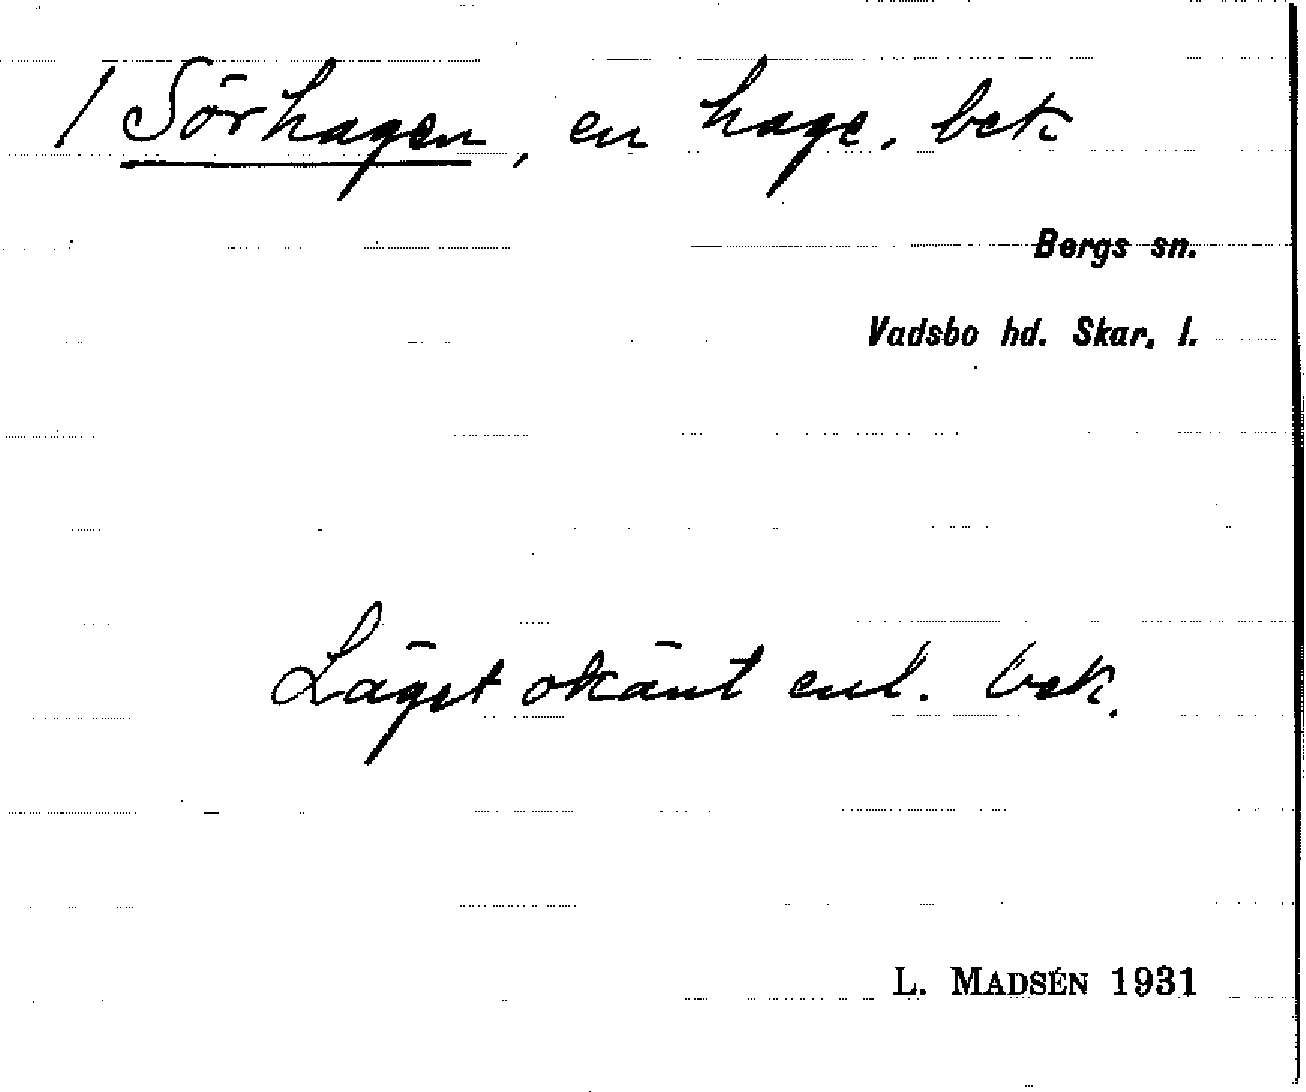 / Sörhagen, en hage. bek
Bergs sn.
Vadsbo hd. Skar. l.
Läget okänt enl. bek.
L. MADSÉN 1931